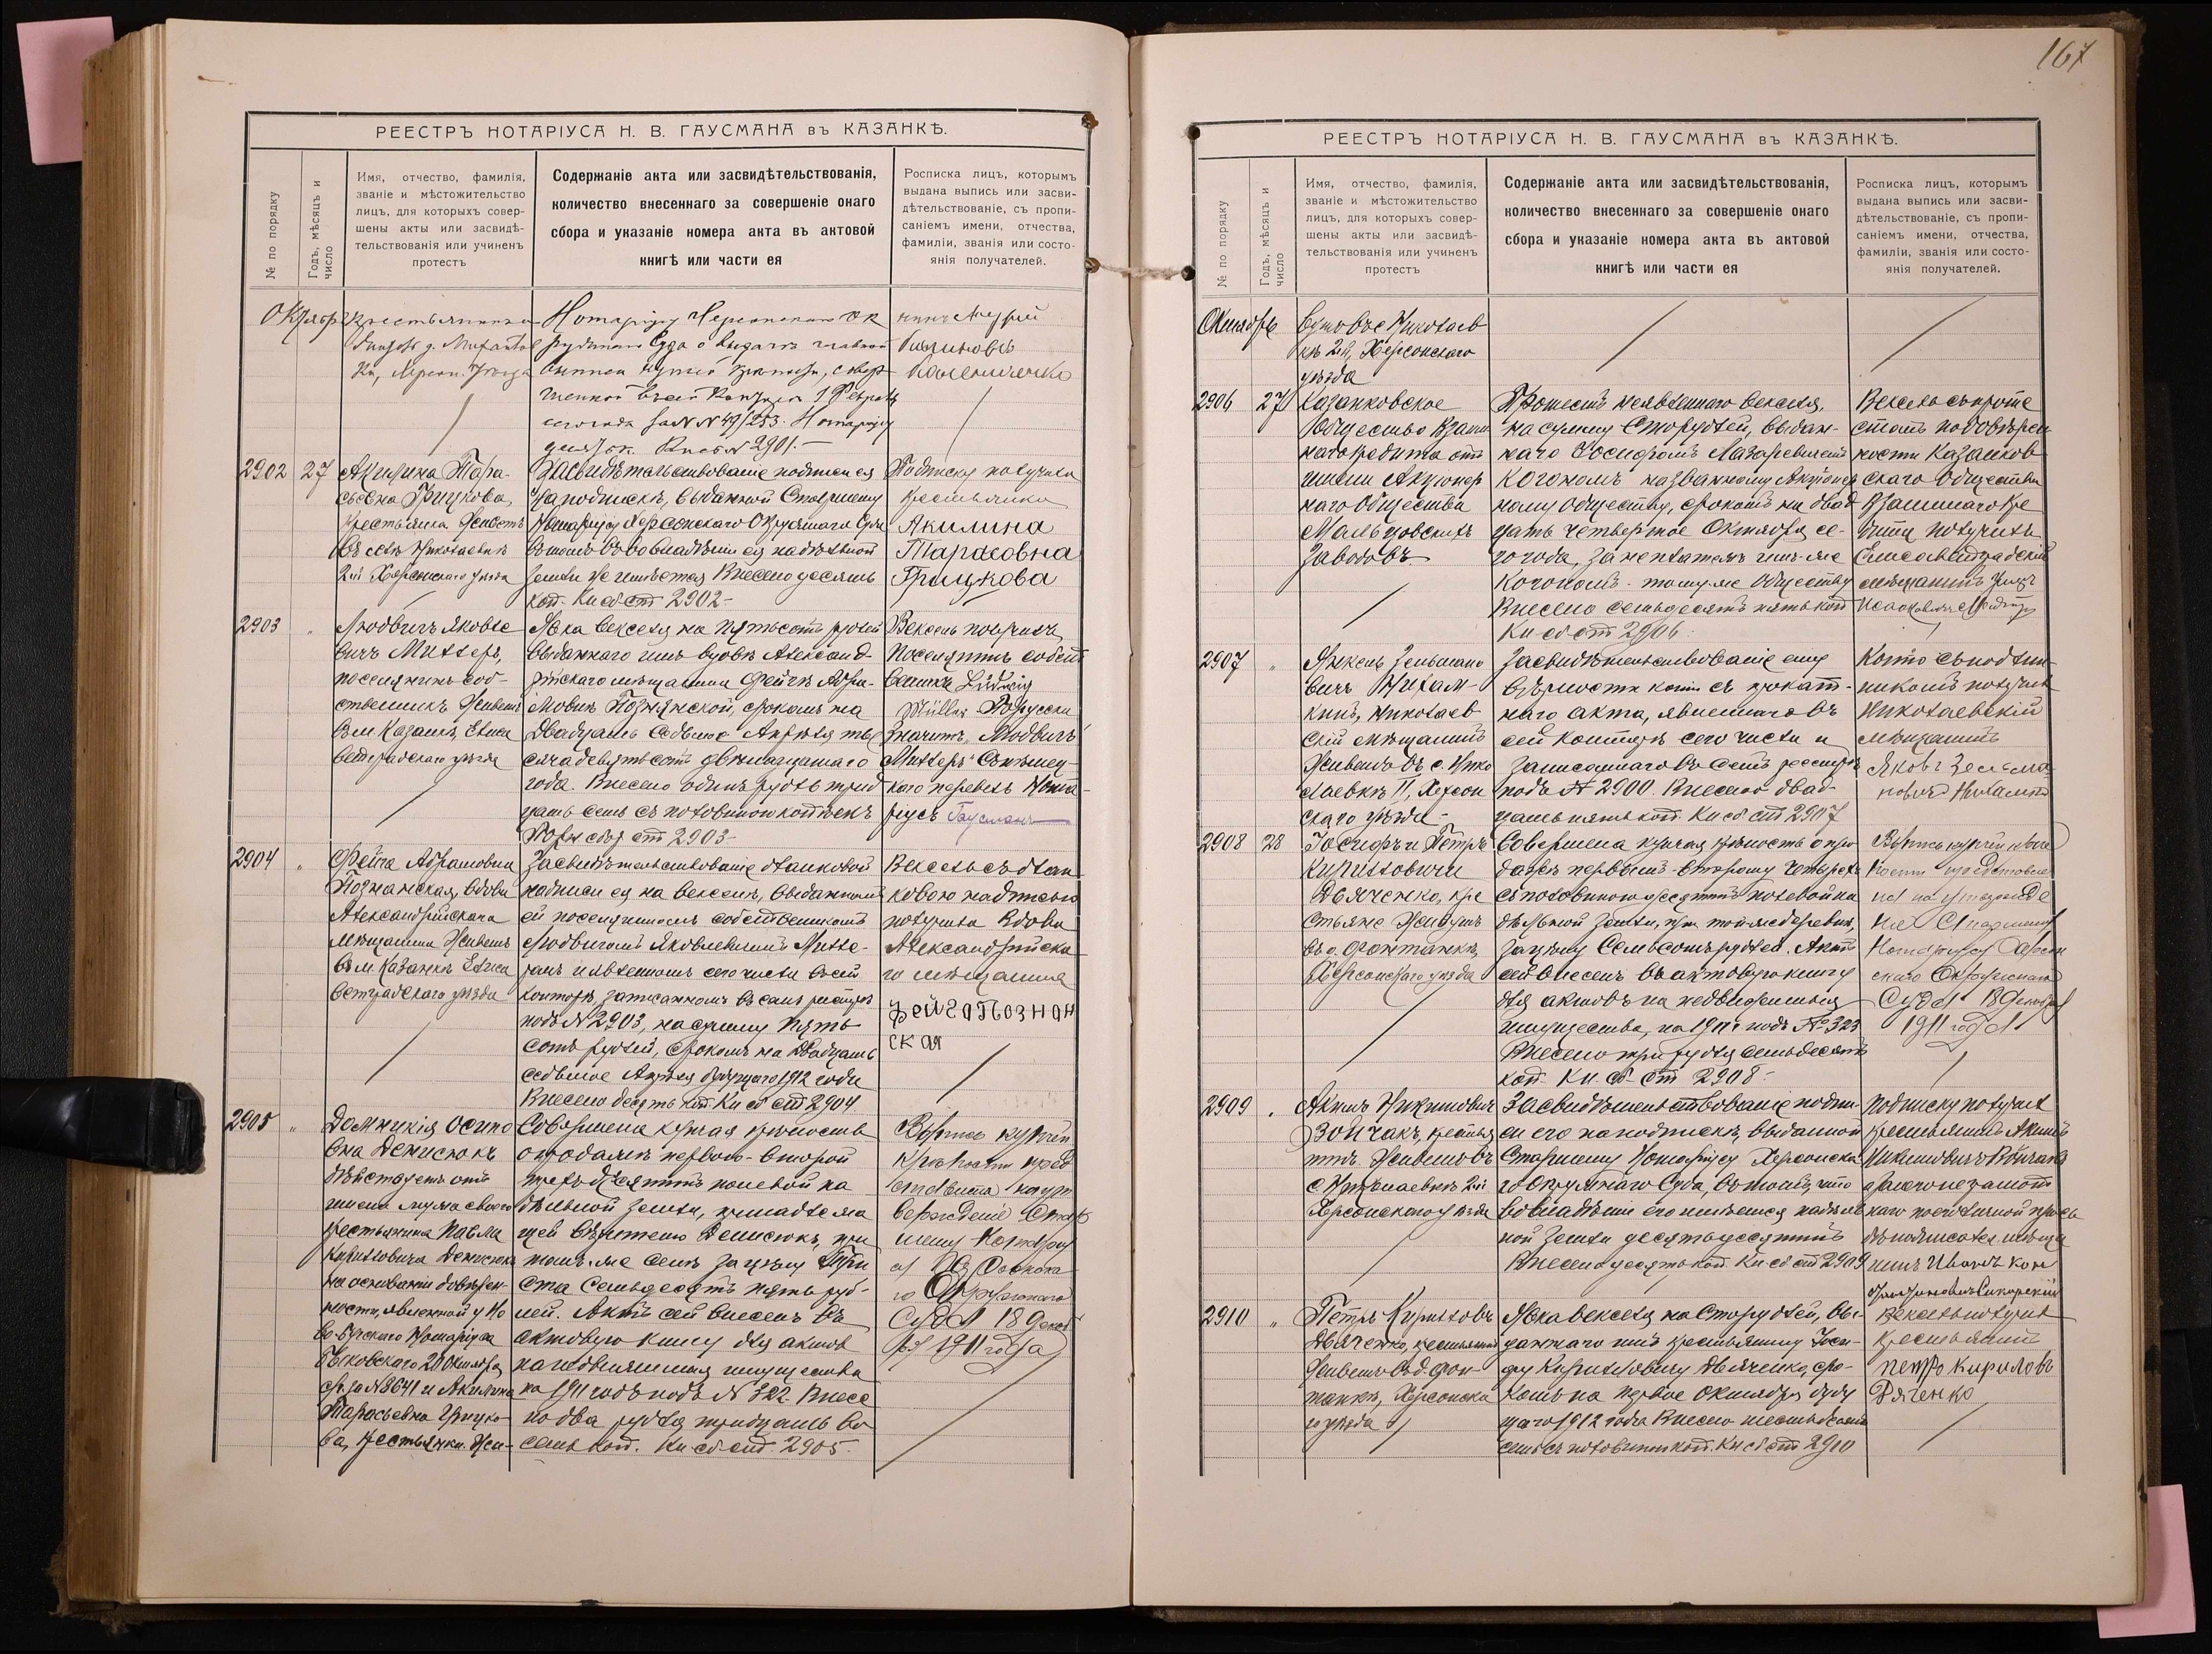 167
РЕЕСТРЪ НОТАРІУСА Н. В. ГАУСМАНА въ КАЗАНКѢ.
№ по порядку
Годъ, мѣсяцъ и число
Имя, отчество, фамилія,
званіе и мѣстожительство
лицъ, для которыхъ совер-
шены акты или засвидѣ-
тельствованія или учиненъ
протестъ
Содержаніе акта или засвидѣтельствованія,
количество внесеннаго за совершеніе онаго
сбора и указаніе номера акта въ актовой
книгѣ или части ея
Росписка лицъ, которымъ
выдана выпись или засви-
дѣтельствованіе, съ пропи-
саніемъ имени, отчества,
фамиліи, званія или состо-
янія получателей.
Нотаріусу Херсонскаго Ок
ружнаго Суда о выдачѣ главной
выписи купчей крѣпости, совер-
шенной въ сей Конторѣ 1 Февраля
сего года за N N 49/253. Нотаріусу
2901.-
2902
27
Акилина Тара-
сьевна Грицкова,
Засвидѣтельствованіе подписи ея
на подпискѣ, выданной Старшему
Нотаріусу Херсонскаго Окружнаго Суда
въ томъ что во владѣніи ея надѣльной
земли не имѣется Внесено десять
коп. Кн сб ст 2902-
Подписку получила
крестьянка
Акилина
Тарасовна
Грицкова
2903
"
Людвигъ Яковле
вичъ Миллеръ,
поселянинъ соб-
ственникъ Живетъ
въ м Казанкѣ Елиса
ветградскаго уѣзда
Явка векселя на пятьсотъ рублей
выданнаго имъ вдовѣ Александ-
рійскаго мѣщанина Фейгѣ Абра-
мовнѣ Познанской, срокомъ на
Двадцать седьмое Апрѣля ты
сяча девятьсотъ двѣнадцатаго
года. Внесено одинъ рубль трид
цать семь съ половиною копѣекъ
ст 2903-
Вексель получилъ
поселянинъ собст
венникъ Ludwig
Müller По русски
значитъ „Людвигъ
Миллеръ" Съ нѣмец-
каго перевелъ Нота-
ріусъ Гаусманъ
2904
"
Фейга Абрамовна
Познанская, вдова
Александрійскаго
мѣщанина Живетъ
въ м. Казанкѣ Елиса
ветградскаго уѣзда
Засвидѣтельствованіе бланковой
надписи ея на векселѣ, выданномъ
ей поселяниномъ собственникомъ
Людвигомъ Яковлевичемъ Милле-
ромъ и явленномъ сего числа въ сей
конторѣ, записанномъ въ семъ реестрѣ
подъ N 2903, на сумму пять
сотъ рублей, срокомъ на Двадцать
седьмое Апрѣля будущаго 1912 года
Внесено десять коп. Кн сб ст 2904
Вексель съ блан
ковою надписью
получила вдова
Александрійска
го мѣщанина
Фейга Познан
ская
2905
"
Домникія Осипо
вна Денисюкъ
дѣйствуетъ отъ
имени мужа своего
крестьянина Павла
Кирилловича Денисюка
на основаніи довѣрен-
ности, явленной у Но
во-Бугскаго Нотаріуса
Быковскаго 20 Октября
с/г. за N 8641 и Акилина
Тарасьевна Грицко-
ва, крестьянки. Жи-
Совершена купчая крѣпость
о продажѣ первою - второй
трехъ десятинъ полевой на
дѣльной земли, принадлежа
щей Кириллу Денисюкъ, при
томъ-же селѣ за цѣну Три
ста Семьдесятъ пять руб-
лей. Актъ сей внесенъ въ
актовую книгу для актовъ
на недвижимыя имущества
на 1911 годъ подъ N 322. Внесе
но два рубля тридцать во
семь коп. Кн сб ст. 2905.
Выпись купчей
крѣпости пред
ставила на ут
вержденіе Стар
шему Нотаріу
су Херсонска
го Окружнаго
Суда 18 Декаб
ря 1911 года
РЕЕСТРЪ НОТАРІУСА Н. В. ГАУСМАНА въ КАЗАНКѢ.
№ по порядку
Годъ, мѣсяцъ и число
Имя, отчество, фамилія,
званіе и мѣстожительство
лицъ, для которыхъ совер-
шены акты или засвидѣ-
тельствованія или учиненъ
протестъ
Содержаніе акта или засвидѣтельствованія,
количество внесеннаго за совершеніе онаго
сбора и указаніе номера акта въ актовой
книгѣ или части ея
Росписка лицъ, которымъ
выдана выпись или засви-
дѣтельствованіе, съ пропи-
саніемъ имени, отчества,
фамиліи, званія или состо-
янія получателей.
Октябрь
вутъ въ с Николаев
кѣ 2й, Херсонскаго
уѣзда
2906
27
Казанковское
Общество Взаим
наго Кредита отъ
имени Акціонер
наго Общества
Мальцовскихъ
Заводовъ
Протестъ неявленнаго векселя,
на сумму Сто рублей, выдан-
наго Іосифомъ Лазаревичемъ
Коганомъ названному Акціонер
ному Обществу, срокомъ на двад
цать четвертое Октября се-
го года, за неплатежъ имъ-же
Коганомъ - тому-же Обществу
Внесено семьдесятъ пять коп
Кн сб ст 2906
Вексель съ проте
стомъ по довѣрен
ности Казанков
скаго Общества
Взаимнаго Кре
дита получилъ
Елисаветградскій
мѣщанинъ
2907
"
Янкель Зельмано
вичъ Нихам-
кинъ, Николаев
скій мѣщанинъ
Живетъ въ с. Нико
лаевкѣ II, Херсон
скаго уѣзда -
Засвидѣтельствованіе ему
вѣрности копіи съ прокат-
наго акта, явленнаго въ
сей Конторѣ сего числа и
записаннаго въ семъ реестрѣ
подъ N 2900. Внесено двад-
цать пять коп. Кн сб ст 2907
Копію съ подлин
никомъ получилъ
Николаевскій
мѣщанинъ
2908
28
Іосифъ и Петръ
Кирилловичи
Дьяченко, кре
стьяне Живутъ
въ д. Фонтанкѣ,
Херсонскаго уѣзда
Совершена купчая крѣпость о про
дажѣ первымъ - второму четырехъ
съ половиною десятинъ полевой на
дѣльной земли, при той-же деревнѣ,
за цѣну Семьсотъ рублей. Актъ
сей внесенъ въ актовую книгу
для актовъ на недвижимыя
имущества, на 1911 г подъ № 323
Внесено три рубля семьдесятъ
коп. Кн. сб. ст 2908 -
Суда 18 Декабря
1911 года
2909
"
Акимъ Никитовичъ
Войчакъ, крестья
нинъ. Живетъ въ
с Николаевкѣ 2й
Херсонскаго уѣзда
Засвидѣтельствованіе подпи-
си его на подпискѣ, выданной
Старшему Нотаріусу Херсонска
го Окружнаго Суда, въ томъ, что
во владѣніи его имѣется надѣль
ной земли десять десятинъ
Внесено десять коп. Кн. сб ст 2909
Подписку получилъ
крестьянинъ Акимъ
Никитовичъ Войчакъ
а за него неграмот
наго по его личной прось
бѣ подписался мѣща
нинъ Иванъ Кон
2910
"
Петръ Кирилловъ
Дьяченко, крестьянинъ
Живетъ въ д. Фон-
танкѣ, Херсонска
го уѣзда
Явка векселя на Сто рублей, вы-
даннаго имъ крестьянину Іоси-
фу Кирилловичу Дьяченко, сро-
комъ на первое Октября буду
щаго 1912 года Внесено
семь съ половиною коп. Кн сб ст 2910
Вексель получилъ
крестьянинъ
Петро Кириловъ
Дяченко